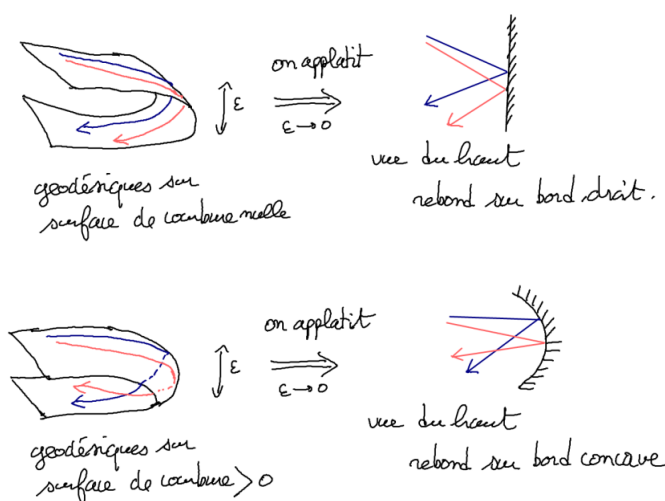 on applatit
ε
ε→0
geodésiques sur
surface de courbure nulle
vue du haut
rebond sur bord droit.
on applatit
ε
ε→0
geodésiques sur
surface de courbure > 0
vue du haut
rebond sur bord concave